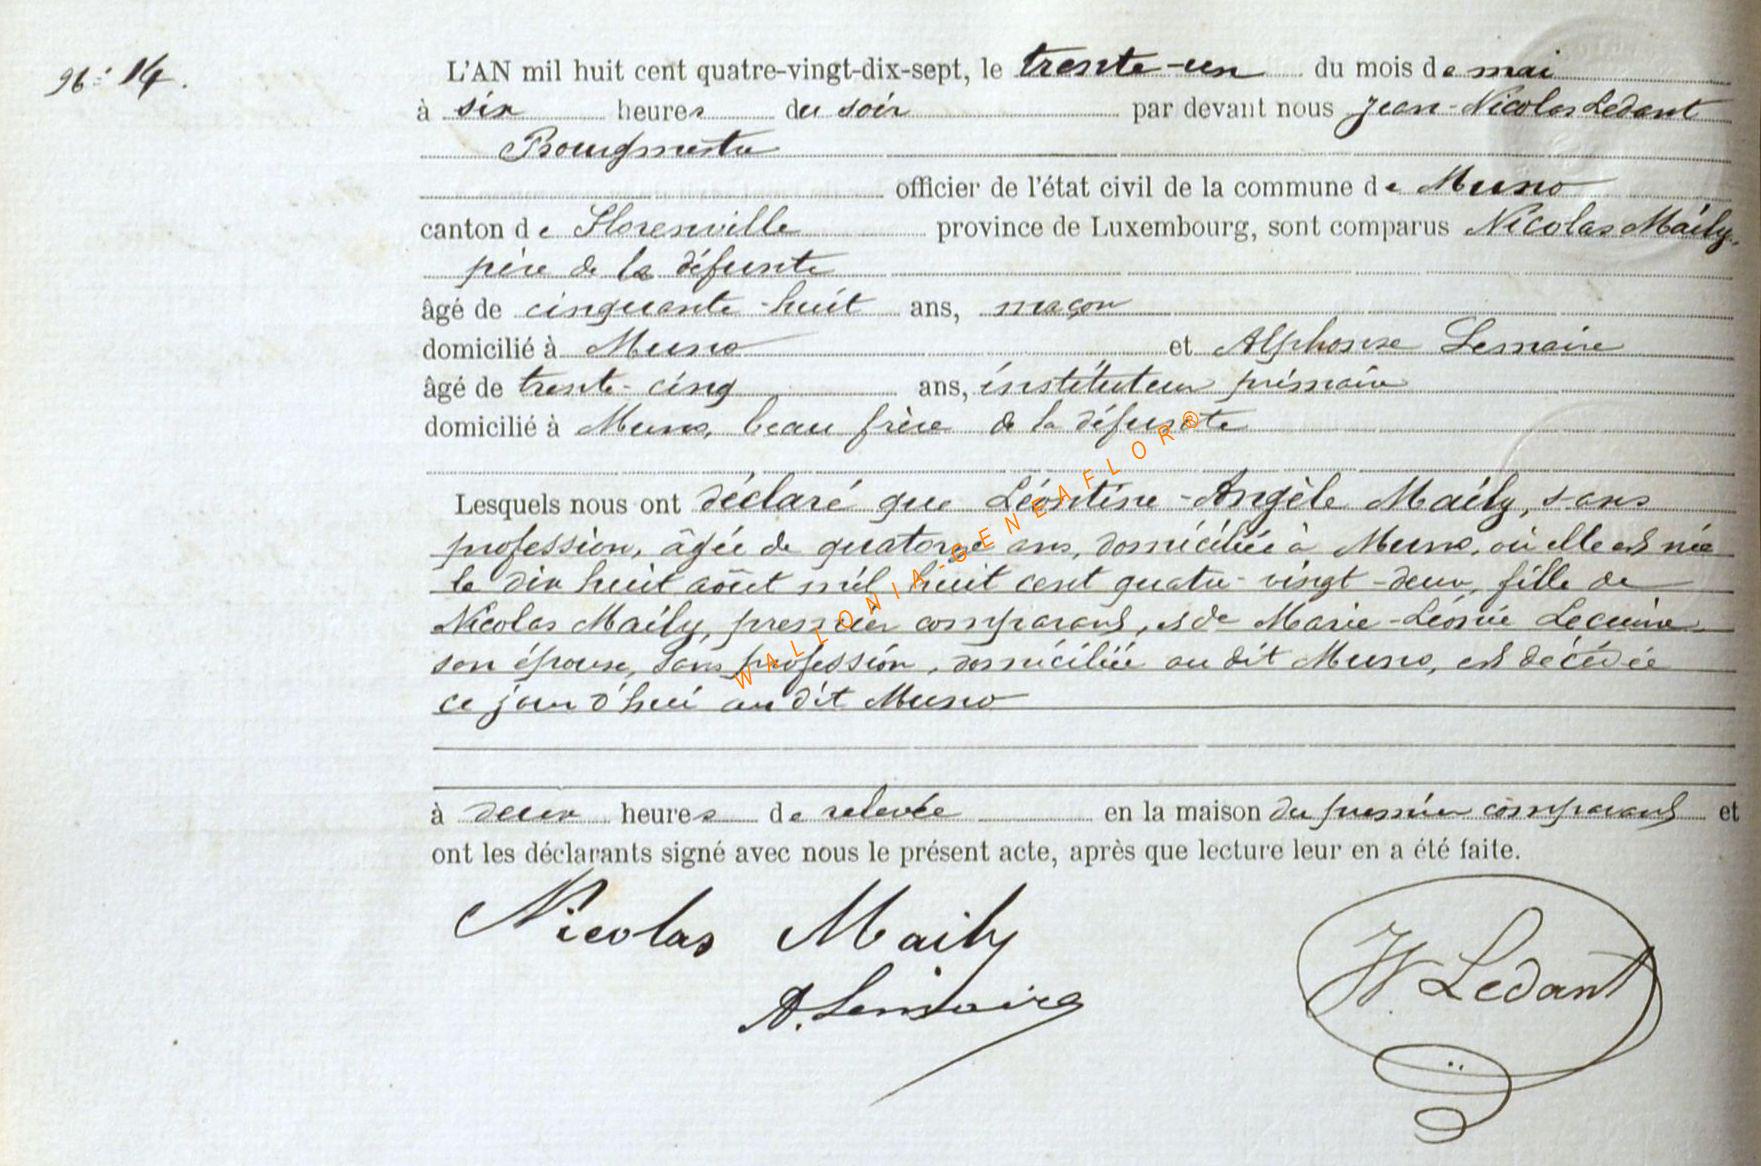 N° 14.
L'AN mil huit cent quatre-vingt-dix-sept, le trente-un du mois de mai
à six heures du soir par devant nous Jean-Nicolas Ledant
Bourgmestre
officier de l'état civil de la commune de Muno
canton de Florenville province de Luxembourg, sont comparus Nicolas Maily,
père de la défunte
âgé de cinquante-huit ans, maçon
domicilié à Muno et Alphonse Lemaire
âgé de trente-cinq ans, instituteur primaire
domicilié à Muno, beau frère de la défunte
Lesquels nous ont déclaré que Léontine-Angèle Maily, sans
profession, âgée de quatorze ans, domiciliée à Muno, où elle est née
le dix huit août mil huit cent quatre-vingt-deux, fille de
Nicolas Maily, premier comparant, et de Marie-Léonie Lecuivre
son épouse, sans profession, domiciliée au dit Muno, est décédée
ce jour d'hui au dit Muno
à deux heures de relevée en la maison du premier comparant et
ont les déclarants signé avec nous le présent acte, après que lecture leur en a été faite.
Nicolas Maily
A. Lemaire
JN Ledant
WALLONIA-GENEAFLOR®